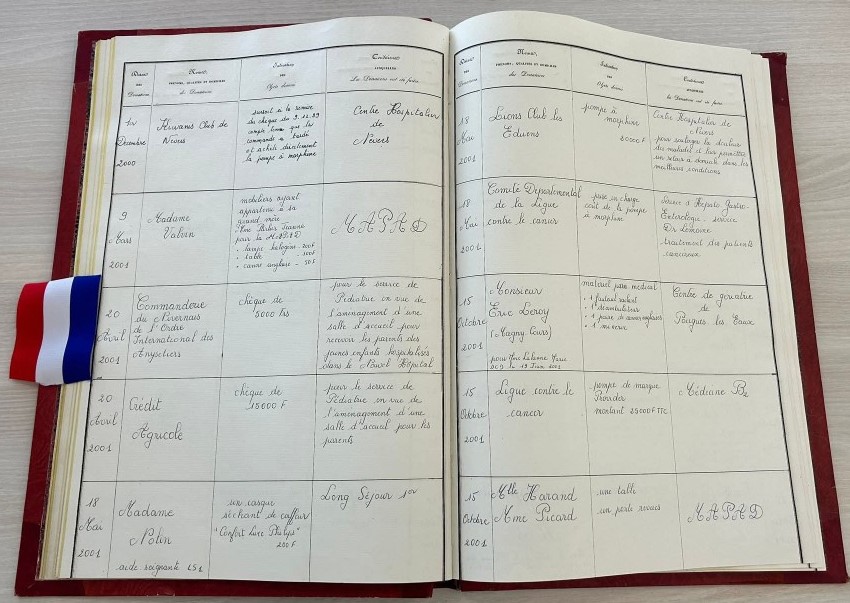 Dates
DES
Donations
Noms,
PRÉNOMS, QUALITÉS ET DOMICILE
des Donateurs
Indication
DES
Objets donnés
Conditions
AUXQUELLES
Les Donations ont été faites
1er
Décembre
2000
Kiwanis Club de
Nevers
suivant à la remise
du chèque du 9.12.99
compte tenu que la
commande a tardé
et acheté directement
la pompe à morphine
Centre Hospitalier
de
Nevers
9
Mars
2001
Madame
Valvin
mobiliers ayant
appartenu à sa
grand mère
Mme Jeanne
pour la MAPAD
• lampe halogène - 200F
• table
• canne anglaise - 50F
MAPAD
20
Avril
2001
Commanderie
du Nivernais
de l'Ordre
International des
Anysetiers
chèque de
5000 Frs
pour le service de
Pédiatrie en vue de
l'aménagement d'une
salle d'accueil pour
recevoir les parents des
jeunes enfants hospitalisés
dans le Nouvel Hôpital
20
Avril
2001
Crédit
Agricole
chèque de
15000 F
pour le service de
Pédiatrie en vue de
l'aménagement d'une
salle d'accueil pour les
parents
18
Mai
2001
Madame
Nolin
aide soignante LS1
un casque
séchant de coiffeur
"Confort Luxe Philips"
200F
Long Séjour 1er
Dates
DES
Donations
Noms,
PRÉNOMS, QUALITÉS ET DOMICILE
des Donateurs
Indication
DES
Objets donnés
Conditions
AUXQUELLES
Les Donations ont été faites
18
Mai
2001
Lions Club les
Eduens
pompe à
morphine
20000F
Centre Hospitalier de
Nevers
pour soulager la douleur
du malade et leur permettre
un retour à domicile dans les
meilleures conditions
18
Mai
2001
Comité Départemental
de la Ligue
contre le cancer
prise en charge
coût de la pompe
à morphine
service d'Hépato Gastro-
Entérologie - service
Dr Lemoine
traitement des patients
cancéreux
15
Octobre
2001
Monsieur
Eric Leroy
(Magny Cours)
pour Mme
le 19 Juin 2001
matériel para-médical
• 1 fauteuil roulant
• 1 déambulateur
• 1 paire de cannes anglaises
• 1
Centre de gériatrie
de
Pougues les Eaux
15
Octobre
2001
Ligue contre le
cancer
pompe de marque
Provider
montant 25000F TTC
Médecine B2
15
Octobre
2001
Mlle Harand
Mme Picard
une table
un porte revues
MAPAD